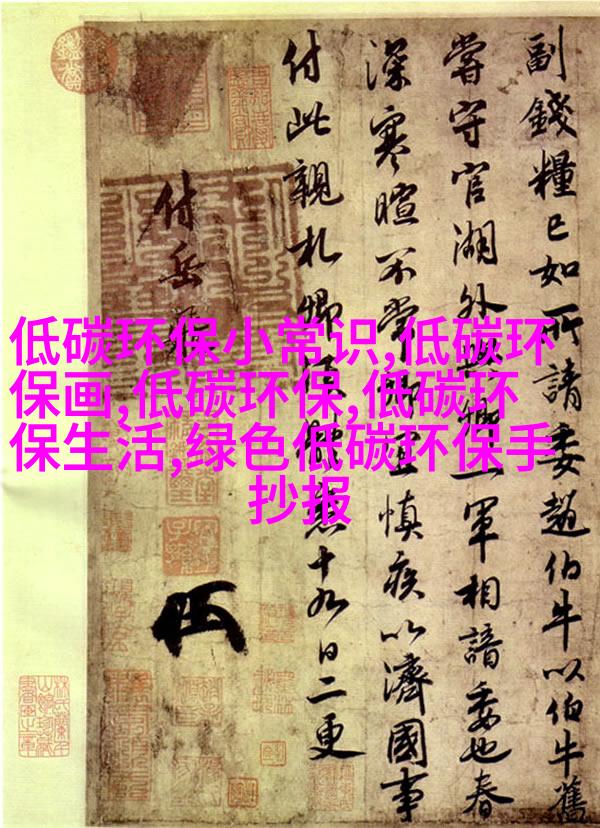 低碳环保小常识,低碳环
保画,低碳环保,低碳环
保生活,绿色低碳环保手
抄报
副錢糧已如所請委趙伯牛以伯牛舊
嘗守官湖外與卿一軍相諳委也春
深寒暄不常卿宜慎疾以濟國事
付此親札卿須體悉十九日二更
付岳